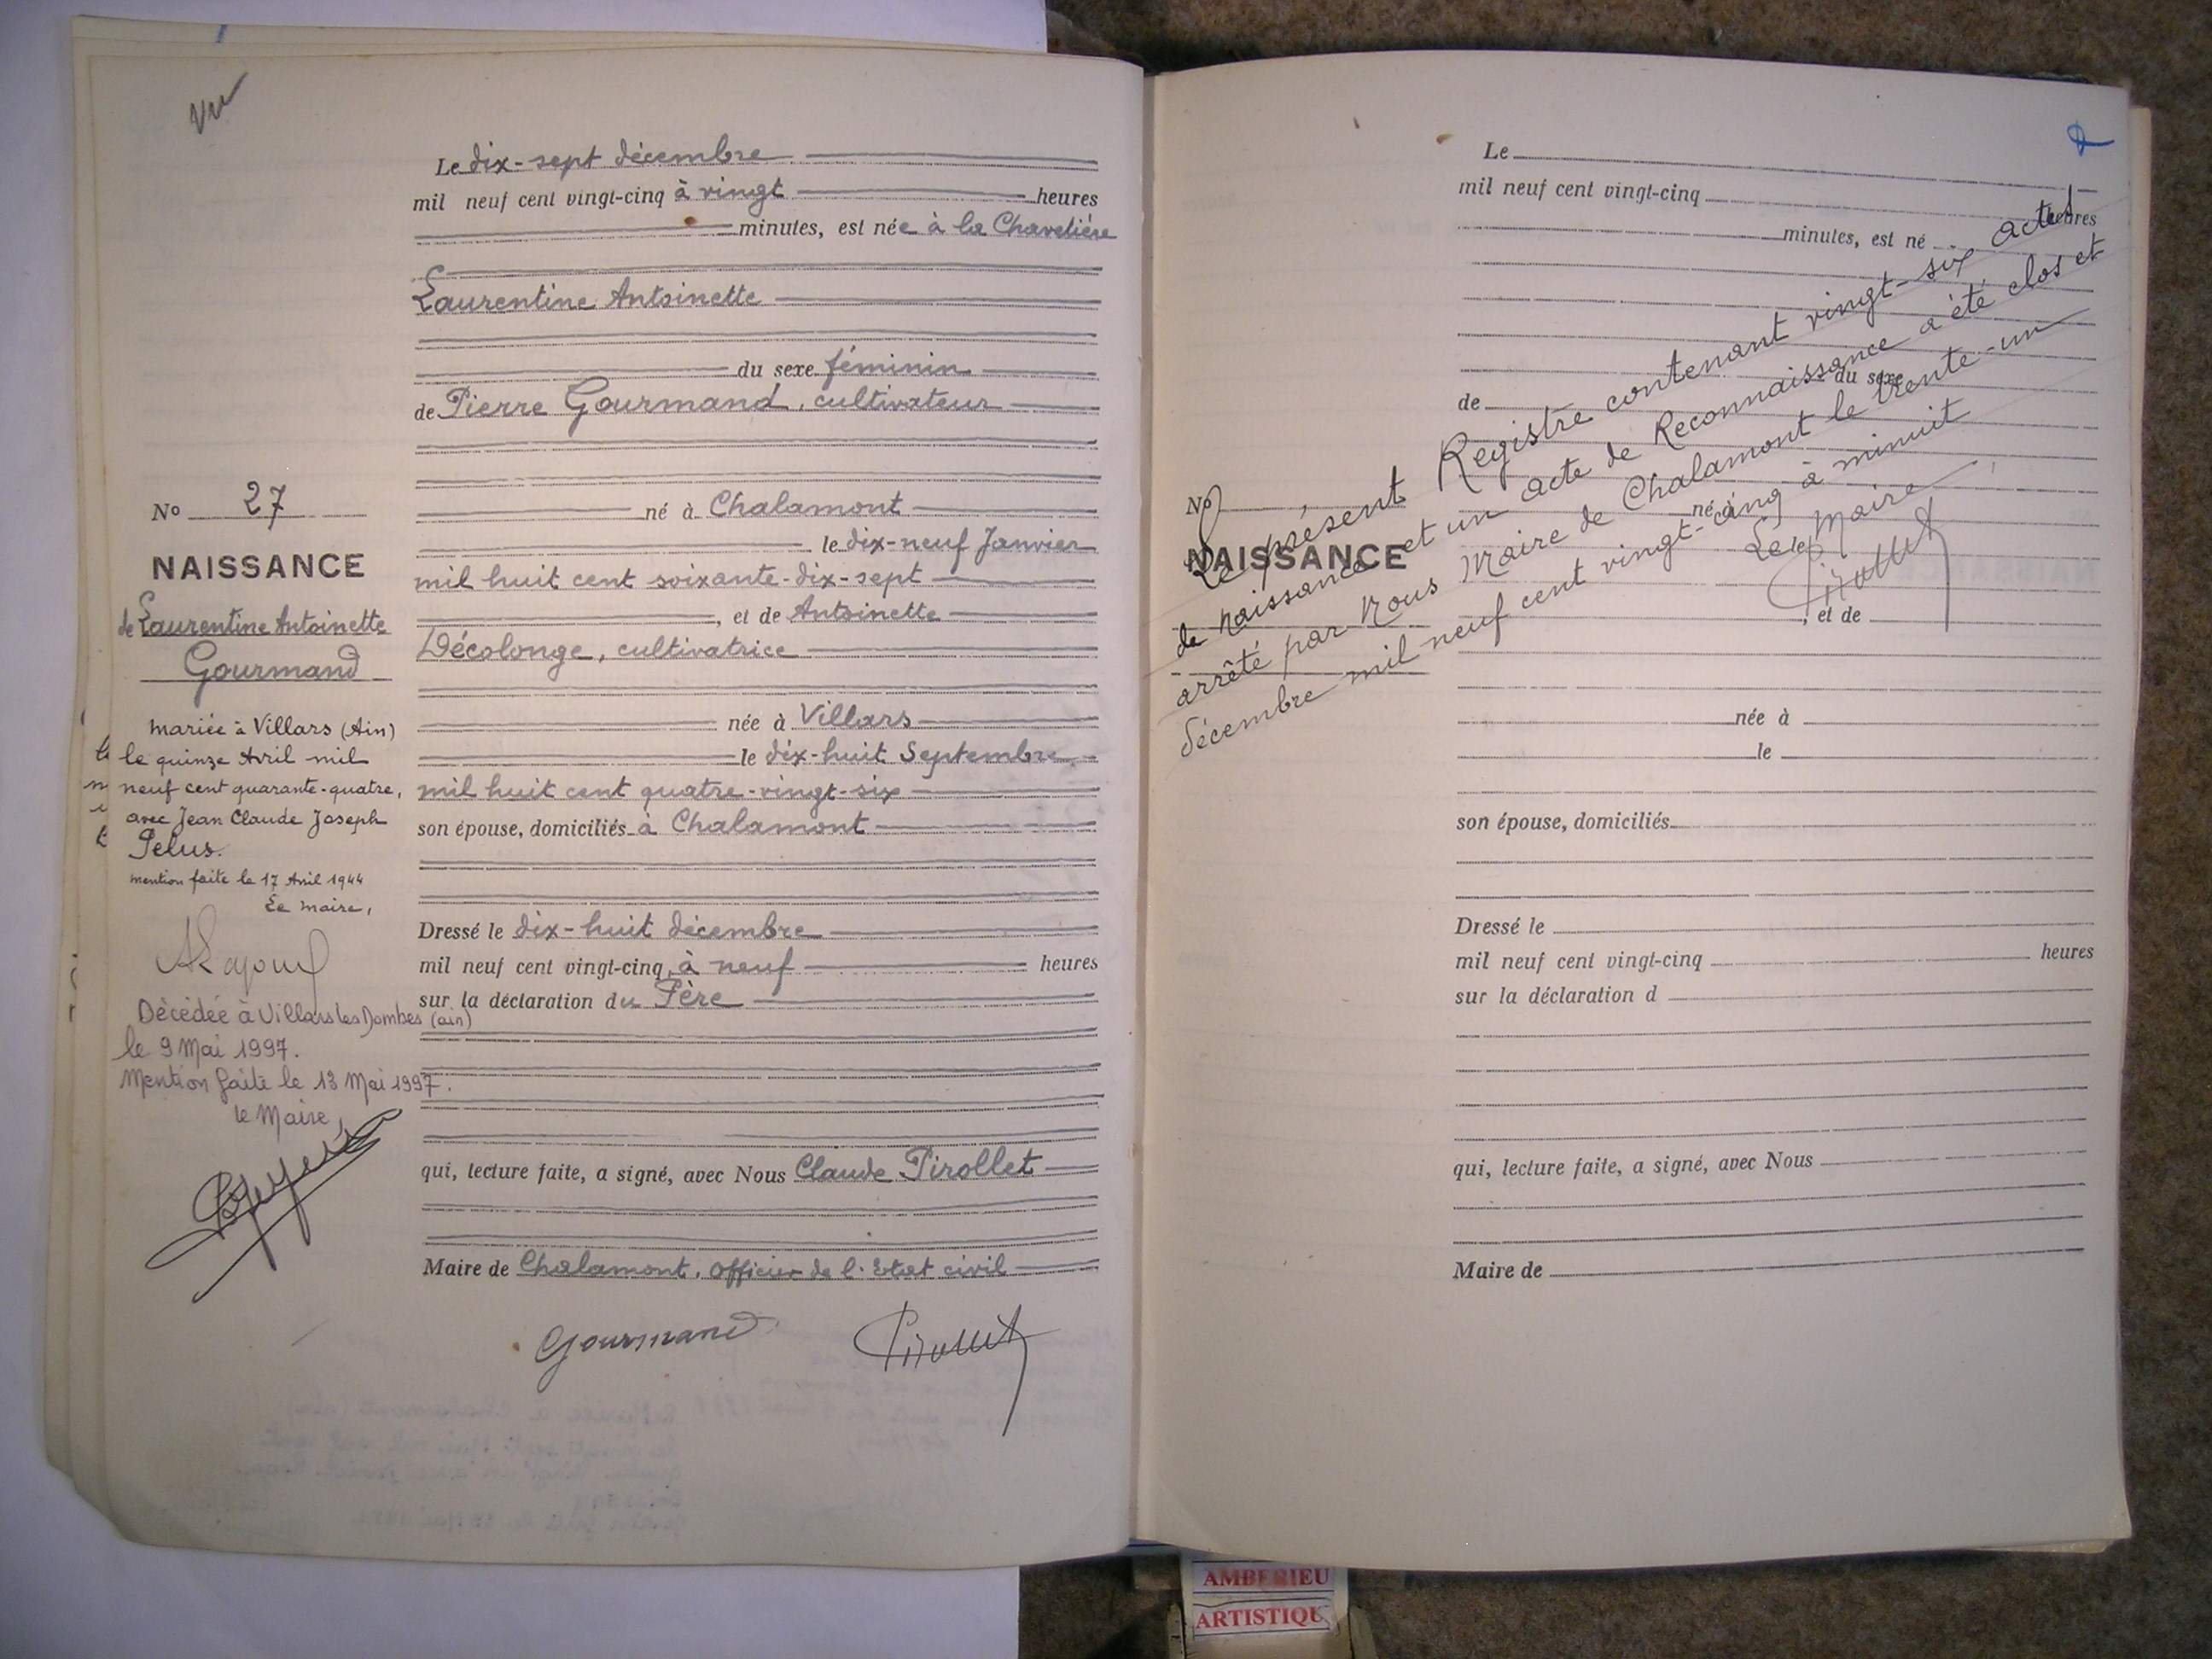 Vu
Le dix-sept décembre
mil neuf cent vingt-cinq à vingt heures
minutes, est née à la Chavelière
Laurentine Antoinette
du sexe féminin
de Pierre Gourmand, cultivateur
né à Chalamont
le dix-neuf Janvier
mil huit cent soixante-dix-sept
, et de Antoinette
Décolonge, cultivatrice
née à Villars
le dix-huit Septembre
mil huit cent quatre-vingt-six
son épouse, domiciliés à Chalamont
Dressé le dix-huit décembre
mil neuf cent vingt-cinq, à neuf heures
sur la déclaration du Père
qui, lecture faite, a signé, avec Nous Claude Pirollet
Maire de Chalamont, officier de l'Etat civil
Gourmand Pirollet
No 27
NAISSANCE
de Laurentine Antoinette
Gourmand
mariée à Villars (Ain)
le quinze Avril mil
neuf cent quarante-quatre,
avec Jean Claude Joseph
Pelus.
mention faite le 17 Avril 1944
Le maire,
Décédée à Villars les Dombes (ain)
le 9 Mai 1997.
Mention faite le 13 Mai 1997.
le Maire,
Le
mil neuf cent vingt-cinq
heures
minutes, est né
du sexe
de
No
NAISSANCE
né à
le
, et de
née à
le
son épouse, domiciliés
Dressé le
mil neuf cent vingt-cinq heures
sur la déclaration d
qui, lecture faite, a signé, avec Nous
Maire de
Le présent Registre contenant vingt-six actes
de naissance et un acte de Reconnaissance a été clos et
arrêté par Nous Maire de Chalamont le trente-un
décembre mil neuf cent vingt-cinq à minuit
Le Maire
Pirollet
AMBERIEU
ARTISTIQU